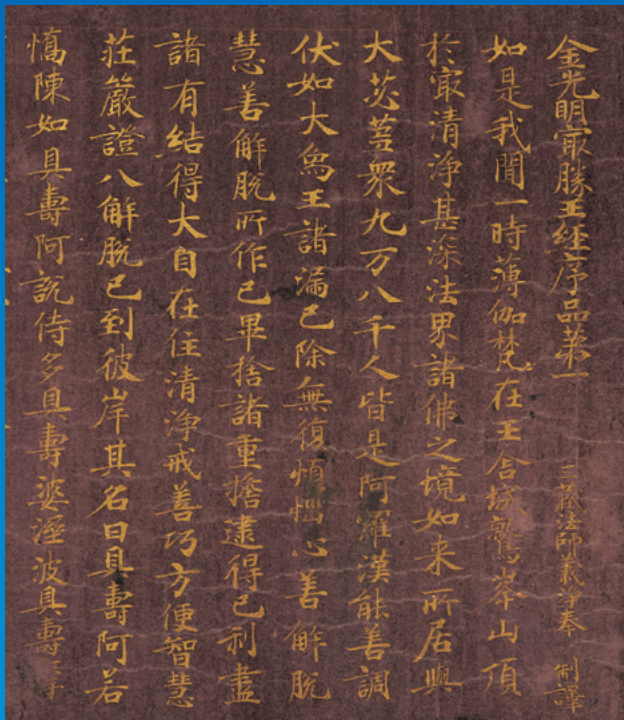 金光明寂勝王經序品第一 三藏法師義淨奉 制譯
如是我聞一時薄伽梵在王舍城鷲峯山頂
於寂清淨甚深法界諸佛之境如来所居與
大苾蒭衆九万八千人皆是阿羅漢能善調
伏如大烏王諸漏已除無復煩惱心善解脫
慧善解脫所作已畢捨諸重擔逮得己利盡
諸有結得大自在住清淨戒善巧方便智慧
莊嚴證八解脫已到彼岸其名曰具壽阿若
憍陳如具壽阿說侍多具壽婆溼波具壽